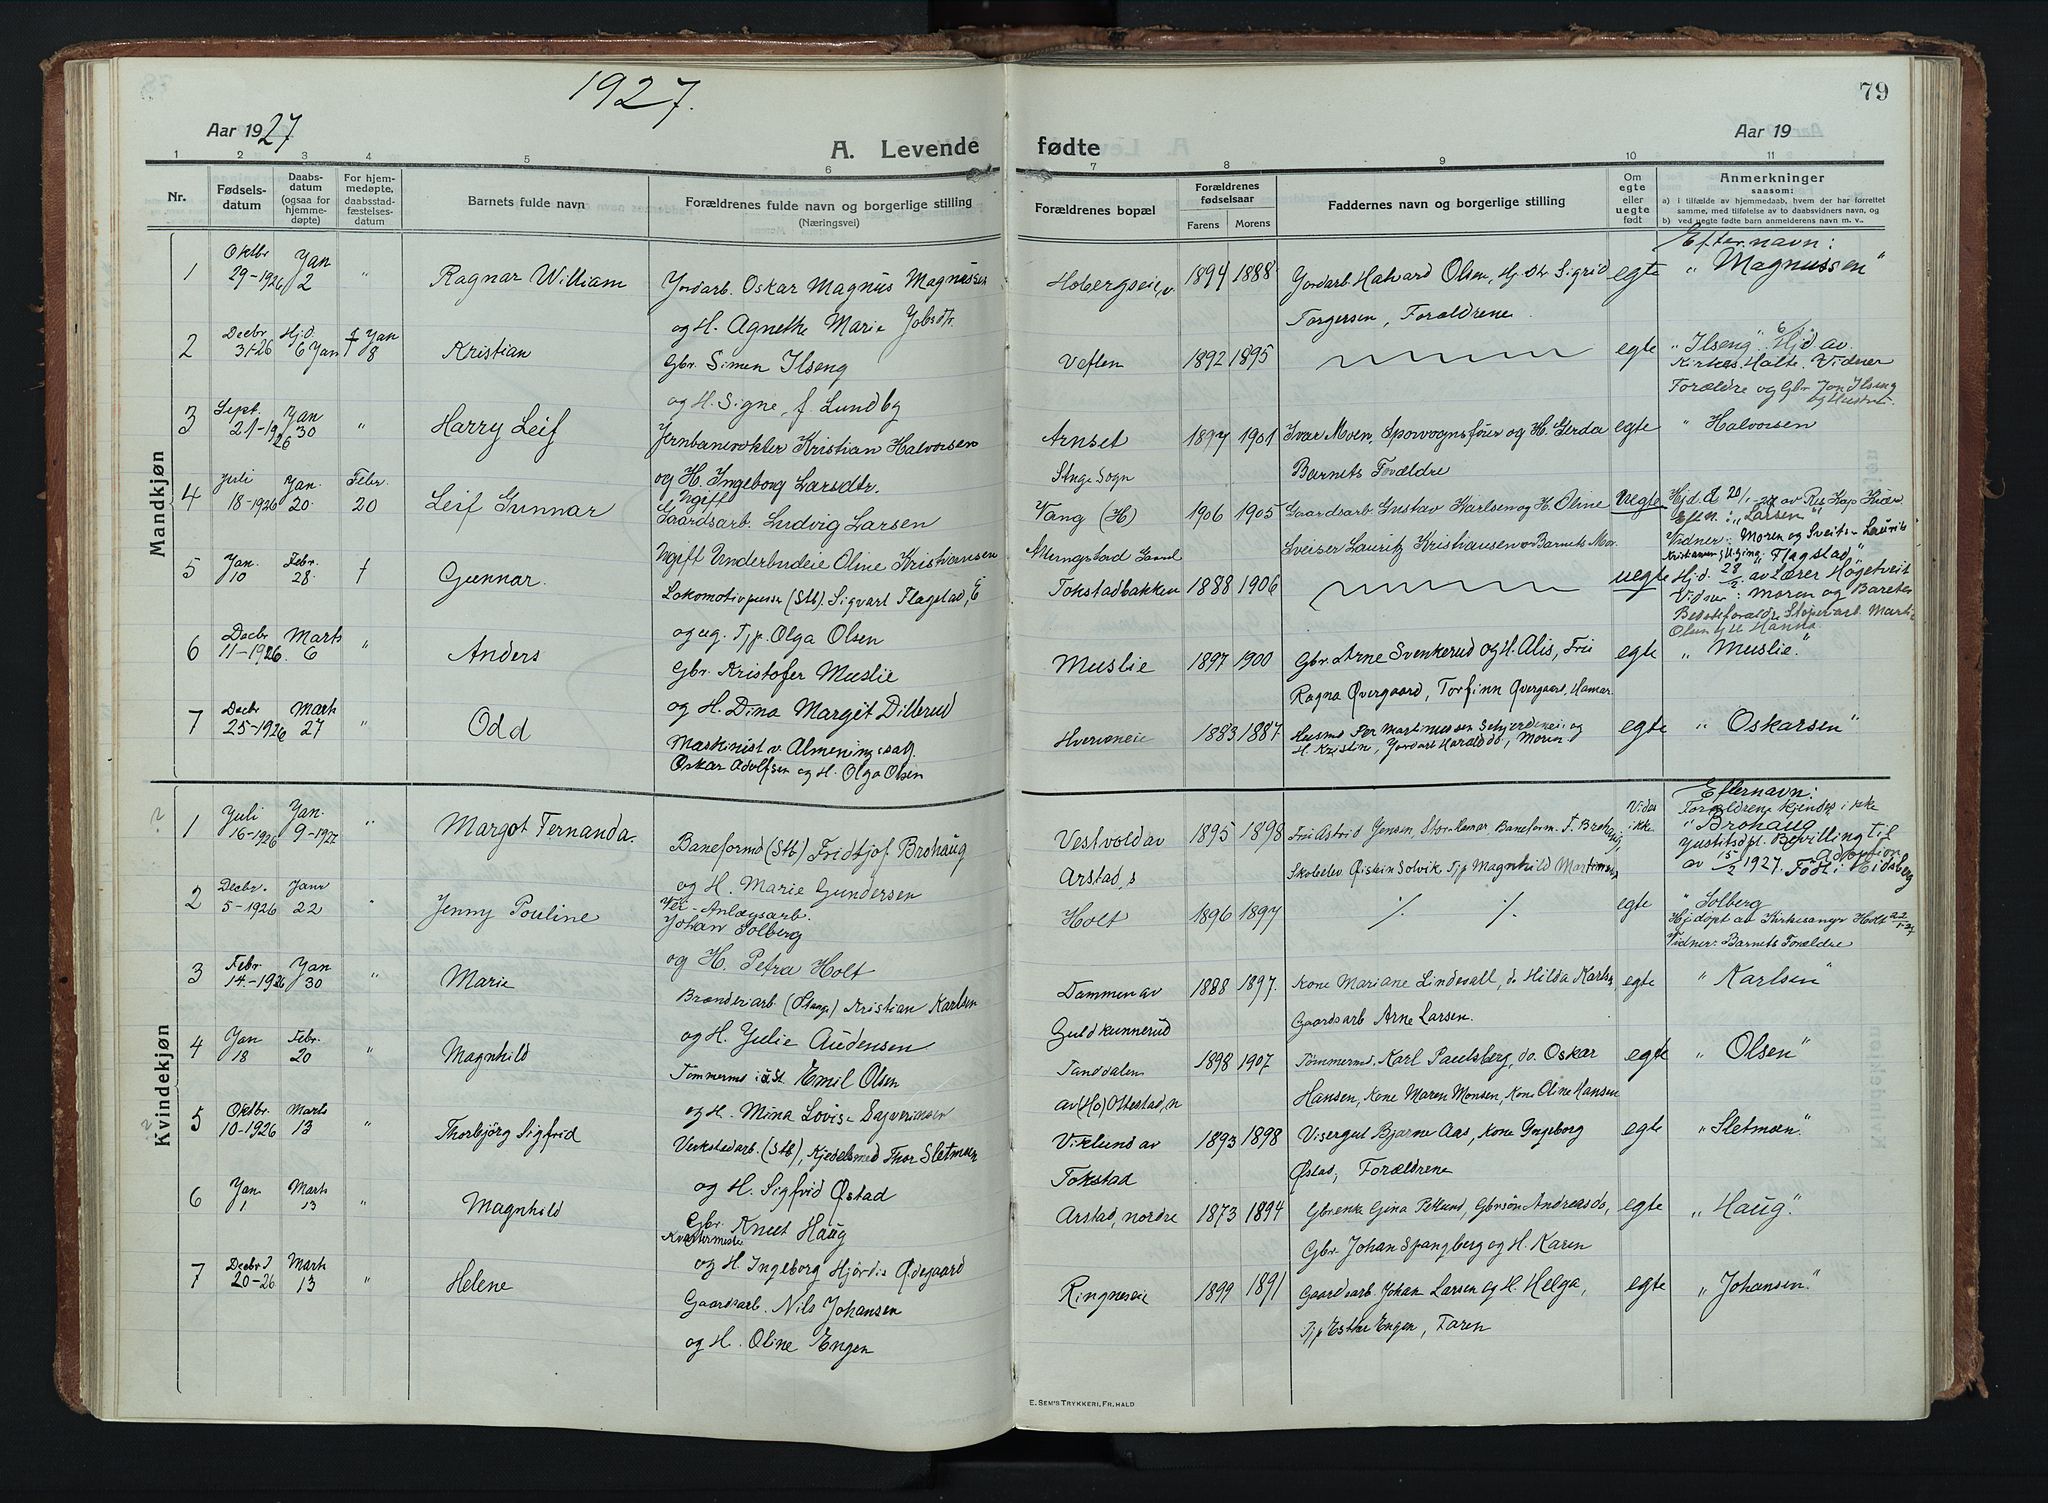 1927.
79
Aar 1927
A. Levende fødte
Aar 19
1 2 3 4 5 6 7 8 9 10 11
Nr.
Fødselsdatum
Daabsdatum (ogsaa for hjemmedøpte)
For hjemmedøpte, daabsstadfæstelsesdatum
Barnets fulde navn
Forældrenes fulde navn og borgerlige stilling (Næringsvei)
Forældrenes bopæl
Forældrenes fødselsaar
Farens Morens
Faddernes navn og borgerlige stilling
Om egte eller uegte født
Anmerkninger
saasom:
a) I tilfælde av hjemmedaab, hvem der har forrettet samme, med tilføielse av to daabsvidners navn, og
b) ved uegte fødte barn anmelderens navn m. v.
Mandkjøn
Efternavn:
1 Oktbr 29-1926 Jan 2 " Ragnar William Jordarb. Oskar Magnus Magnussen Hobergseie, v 1894 1888 Jordarb Halvard Olsen, Hj. Str Sigrid egte " Magnussen"
og H. Agnethe Marie Jobsdtr. Torgersen, Forældrene.
2 Decbr 31-26 Hjd. 6 Jan † Jan 8 Kristian Gbr. Simen Ilseng Veflen 1892 1895 egte " Ilseng". Hjd av
og H. Signe, f. Lundby Kirkes. Holte. Vidner
Forældre og Gbr Jon Ilseng og Hustru.
3 Sept. 21-1926 Jan 30 " Harry Leif Jernbanevokter Kristian Halvorsen Arnset 1897 1901 Ivar Moen, Sporvognsfører og H. Gerda egte " Halvorsen
og H. Ingeborg Larsdtr. Stange Sogn Barnets Forældre
4 Juli 18-1926 Jan. 20 Febr 20 Leif Gunnar Ugift Gaardsarb. Ludvig Larsen Vang (H) 1906 1905 Gaardsarb Gustav Karlsen og H. Oline uegte Hjd. d 20/1-27 av Res Kap Kiær
Eftn.: "Larsen"
Ugift Underbudeie Oline Kristiansen Sveiser Lauritz Kristiansen Barnets Mor. Vidner: Moren og Sveits. Laurits
5 Jan. 10 Febr. 28. † Gunnar. Lokomotivpusser (Stb). Sigvart Flagstad, E Tokstadbakken 1888 1906 uegte "Flagstad"
og ug. Tjp. Olga Olsen Hjd. 28/2 av Lærer Høgetveit
Vidner: Moren og Barnets
Bedsteforældre
Olsen g H Hanna
6 Decbr 11-1926. Marts 6 " Anders Gbr. Kristofer Muslie Muslie 1897 1900 Gbr. Arne Svenkerud og H. Alis, Frü egte " Muslie."
og H. Dina Margit Dillerud Ragna Øvergaard, Torfinn Øvergaard, Hamar.
7 Decbr 25-1926 Marts 27 " Odd Maskinist v. Almeningssag Hverveneie 1883 1887 Husmd Per Martinussen og egte " Oskarsen"
Oskar Adolfsen og H. Olga Olsen H. Kristin, Jordarb Harald do, Moren
Kvindekjøn
Efternavn:
1 Juli 16-1926 Jan. 9-1927 " Margot Fernanda. Baneformd (Stb) Fridtjof Brohaug Vestvold av 1895 1898 Frü Astrid Jensen, Storhamar Baneform. F. Brohaug, Vides ikke Forældrene kjendes ikke
og H. Marie Gundersen Arstad, s Skoleelev Øistein Solvik Tjp Magnhild Martinsen " Brohaug
Justitsdpt. Bevilling til Adoption
av 15/2 1927. Født i Eidsberg
2 Decbr. 5-1926 Janr 22 " Jenny Pouline Vei-Anlægsarb. Johan Solberg Holt 1896 1897 ./. ./. egte " Solberg
og H. Petra Holt Hjdøpt av Kirkesanger Holt 22/1-27
Vidner: Barnets Forældre
3 Febr 14.-1926 Jan 30 " Marie Brænderiarb (Stange) Kristian Karlsen Dammen av 1888 1897. Kone Mariane Lindevall, do Hilda Karlsen egte " Karlsen"
og H. Julie Audensen Guldkunnerud Gaardsarb Arne Larsen.
4 Jan 18 Febr. 20 " Magnhild Tømmermd i Emil Olsen Tanddalen 1898 1907 Tømmermd. Karl Paulsberg, do. Oskar egte " Olsen"
og H. Mina Lovise Syverinsen av (Ho) Ottestad, n Hansen, Kone Maren Monsen, Kone Oline Hansen
5 Oktbr 10-1926 Marts 13 " Thorbjörg Sigfrid Verkstadarb. (Stb), Kjedelsmed Thor Sletmoen Viklund av 1893 1898 Visergut Bjarne Aas, Kone Ingeborg egte " Sletmoen."
og H. Sigfrid Østad Tokstad Østad, Forældrene
6 Jan 1 Marts 13 " Magnhild Gbr. Knut Haug Arstad, nordre 1873 1894 Gbrenke Gina Petlund, Gbrsøn Andreas do, egte " Haug."
Kvartermester og H. Ingeborg Hjördis Ødegaard Gbr. Johan Spangberg og H. Karen
7 Decbr 20-26 Marts 13 " Helene Gaardsarb. Nils Johansen Ringneseie 1899 1891 Gaardsarb. Johan Larsen og H. Helga, egte " Johansen."
og H. Oline Engen Tjp Esther Engen, Faren
E. SEM'S TRYKKERI, FR. HALD